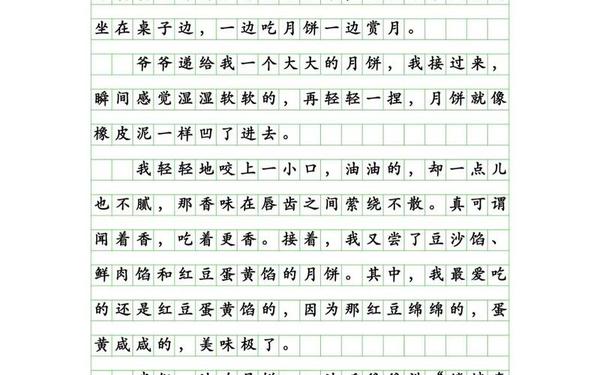 坐在桌子边，一边吃月饼一边赏月。
爷爷递给我一个大大的月饼，我接过来，
瞬间感觉湿湿软软的，再轻轻一捏，月饼就像
橡皮泥一样凹了进去。
我轻轻地咬上一小口，油油的，却一点儿
也不腻，那香味在唇齿之间萦绕不散。真可谓
闻着香，吃着更香。接着，我又尝了豆沙馅、
鲜肉馅和红豆蛋黄馅的月饼。其中，我最爱吃
的还是红豆蛋黄馅的，因为那红豆绵绵的，蛋
黄咸咸的，美味极了。